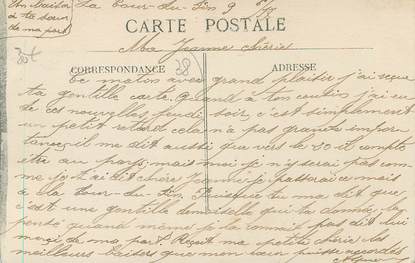 Un baiser La Tour-du-Pin 9
à ta sœur
de ma part
CARTE POSTALE
Ma Jeanne chérie
30f
38
CORRESPONDANCE ADRESSE
Ce matin avec grand plaisir j'ai reçu
ta gentille carte. Quand à ton cousin j'ai eu
de ces nouvelles jeudi soir, c'est simplement
un petit retard cela n'a pas grande impor-
tance, il me dit aussi que vers le 20 il compte
être au pays, mais moi je n'y serai pas com-
me je t'ai dit chère Jeanne je passerai mais
à la Tour-du-Pin. Puisque tu me dit que
c'est une gentille demoiselle qui te donne la
pensé quand même je la connait pas dit lui
merci de ma part. Reçoit ma petite chérie les
meilleurs baisers que mon cœur puisse